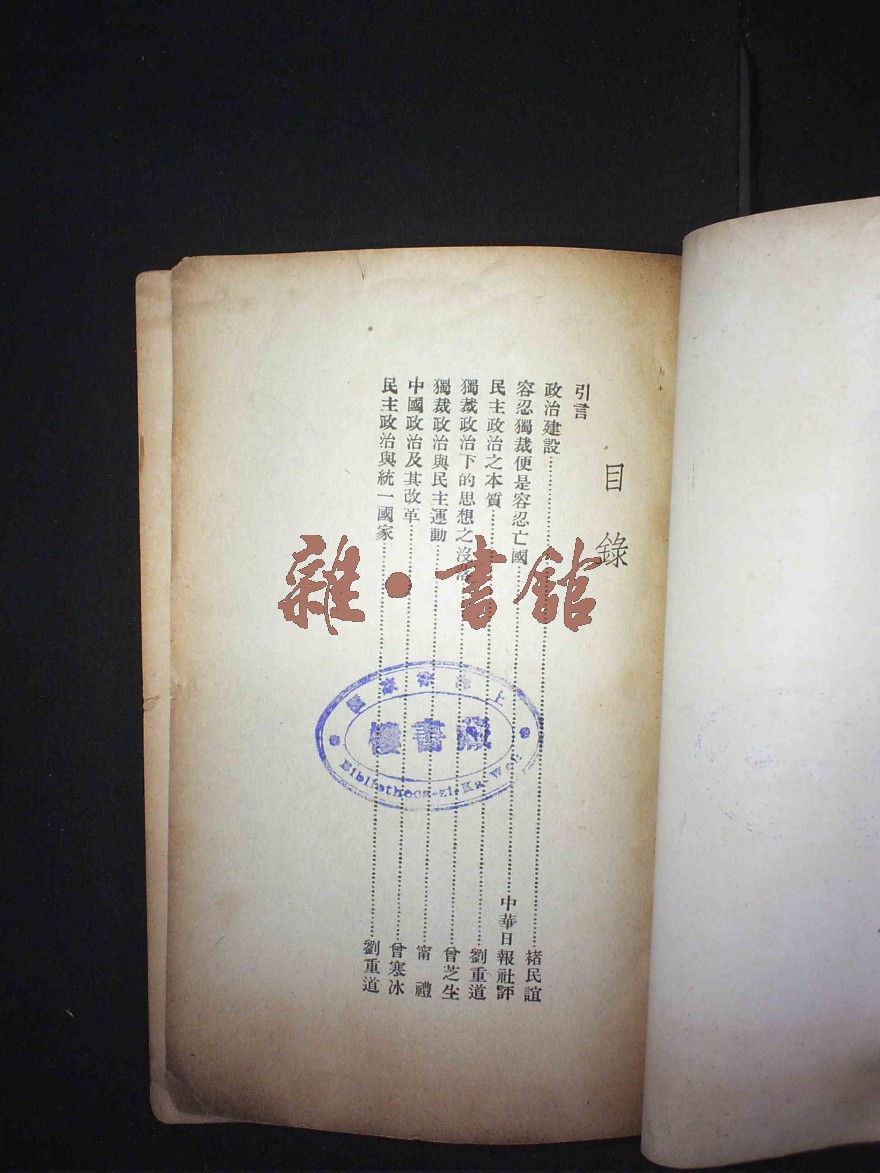 目錄
引言
政治建設 褚民誼
容忍獨裁便是容忍亡國 中華日報社評
民主政治之本質 劉重道
獨裁政治下的思想之沒落 曾芝生
獨裁政治與民主運動 甯禮
中國政治及其改革 曾寒冰
民主政治與統一國家 劉重道
雜·書館
藏書樓
Bibliotheca-zi-Ka-Wei